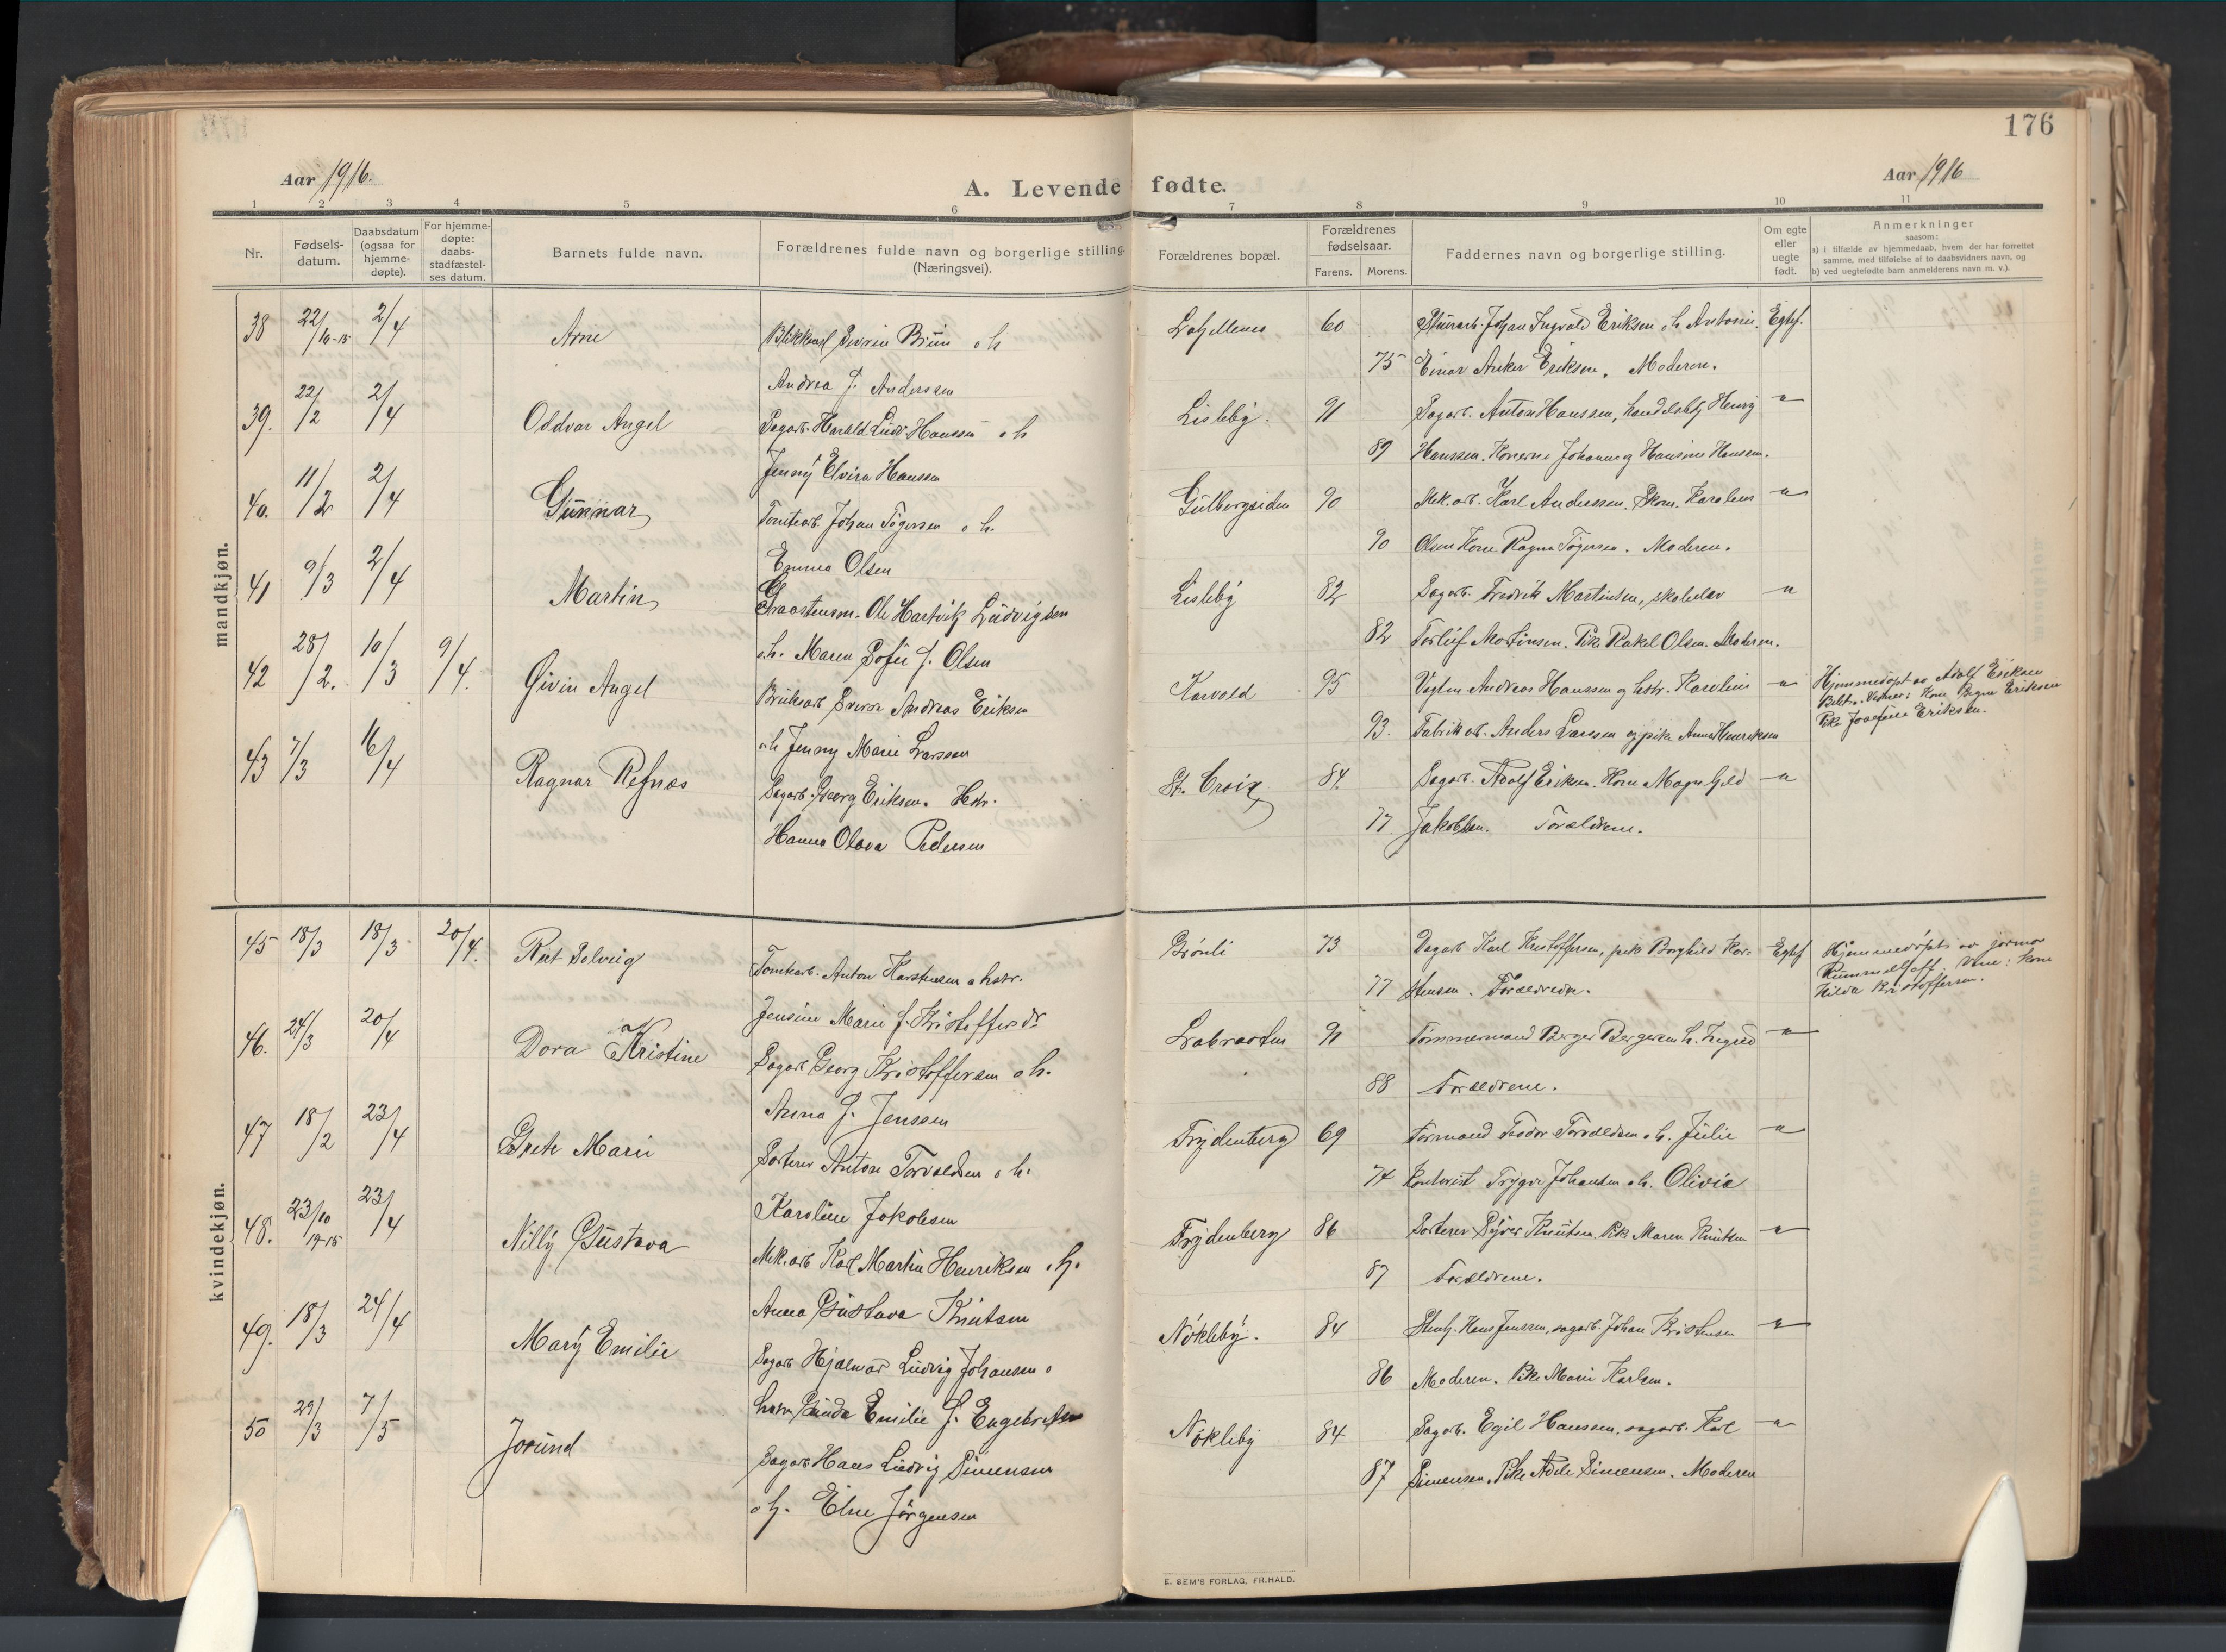 176
Aar 1916.
A. Levende fødte.
Aar 1916
1 2 3 4 5 6 7 8 9 10 11
Nr.
Fødsels-
datum.
Daabsdatum
(ogsaa for
hjemme-
døpte).
For hjemme-
døpte:
daabs-
stadfæstel-
ses datum.
Barnets fulde navn.
Forældrenes fulde navn og borgerlige stilling
(Næringsvei).
Forældrenes bopæl.
Forældrenes
fødselsaar.
Farens. Morens.
Faddernes navn og borgerlige stilling.
Om egte
eller
uegte
født.
Anmerkninger
saasom:
a) i tilfælde av hjemmedaab, hvem der har forrettet
samme, med tilføielse af to daabsvidners navn, og
b) ved uegtefødte barn anmelderens navn m. v.).
mandkjøn.
38 22/10-15 2/4 Arne 60 Johan Ingvald Eriksen o h Antonie. Egtef.
Andrea f. Anderssen 75 Einar Anker Eriksen. Moderen.
39. 22/2 2/4 Oddvar Angel Sagarb. Harald Ludv. Hanssen o h Lisleby. 91 Sagarb. Anton Hanssen, Henry
Jenny Elvira Hanssen 89 Hanssen. Konerne Johanne og Hansine Hansen.
40. 11/2 2/4 Gunnar Tomtearb. Johan Tøgersen o h. Gulbergsiden 90 Mek. arb. Karl Anderssen. Karoline
Emma Olsen 90 Olsen Kone Ragna Tøgersen. Moderen.
41 9/3 2/4 Martin Ole Hartvik Ludvigsen Lisleby 82 Sagarb. Fredrik Martinsen,
o.h. Maren Sofie f. Olsen 82 Torleif Martinsen. Pike Rakel Olsen. Moderen.
42 28/2. 10/3 9/4. Øivin Angel Bruksarb. Sverre Andreas Eriksen 95 Andreas Hanssen og hstr. Karoline Hjemmedøpt av Adolf Eriksen
Kone Eriksen
o h Jenny Marie Larssen 93. Fabrikarb. Anders Larssen og pike Anna Henriksen Pike Josefine Eriksen.
43 7/3 16/4 Ragnar Refnæs Sagarb. Georg Eriksen. Hstr. St. Croix 84. Sagarb. Adolf Eriksen. Kone Magnhild
Hanna Olava Pedersen 77. Jakobsen. Forældrene.
kvindekjøn.
45 18/3 18/3 20/4. Rut Solveig Tomtearb. Anton Karstensen o hstr. Brønli 73 Sagarb. Karl Kristoffersen, pike Borghild Kar- Egtef Hjemmedøpt av jormor
Vitne: Kone
Jensine Marie f. Kristoffersdr. 77 stensen. Forældrene. Hilda Kristoffersen.
46. 24/3 20/4 Dora Kristine Sagarb Georg Kristoffersen o h. Labraaten 91 Tømmermand Berger Bergersen h. Ingrid
Anna f. Jenssen 88 Forældrene.
47 18/2 23/4 Grete Marie Sorterer Anton Torvaldsen o h. Frydenberg 69 Formand Teodor Torvaldsen o h. Julie
Karoline Jakobsen 74 Kontorist Trygve Johansen o h. Olivia
48. 23/10 1915 23/4 Nilly Gustava Mek. arb Karl Martin Henriksen o h. Frydenberg 86 Sorterer Syver Knutsen. Pike Maren Knutsen
Anna Gustava Knutsen 87 Forældrene.
49. 18/3 24/4 Mary Emilie Sagarb Hjalmar Ludvig Johansen o Nøkleby. 84 Hans Jenssen, sagarb. Johan Kristensen
Emilie f. Engebretsen 86 Moderen. Pike Marie Karlsen.
50 29/3 7/5 Jorund Sagarb Hans Ludvig Simensen Nøkleby 84 Sagarb. Egil Hanssen, sagarb. Karl
o h. Eline Jørgensen 87 Simensen, Pike Adele Simensen. Moderen
E. SEM'S FORLAG, FR.HALD.